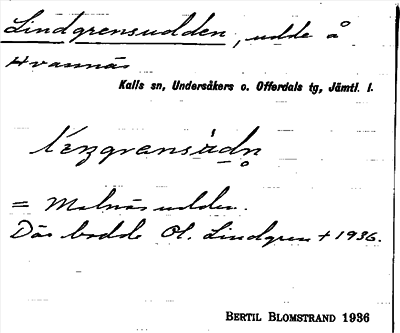 Lindgrensudden, udde å
Hvasnäs
Kalls sn, Undersåkers o. Offerdals tg, Jämtl. l.
= Malnäsudden.
Där bodde Ol. Lindgren † 1936.
BERTIL BLOMSTRAND 1936